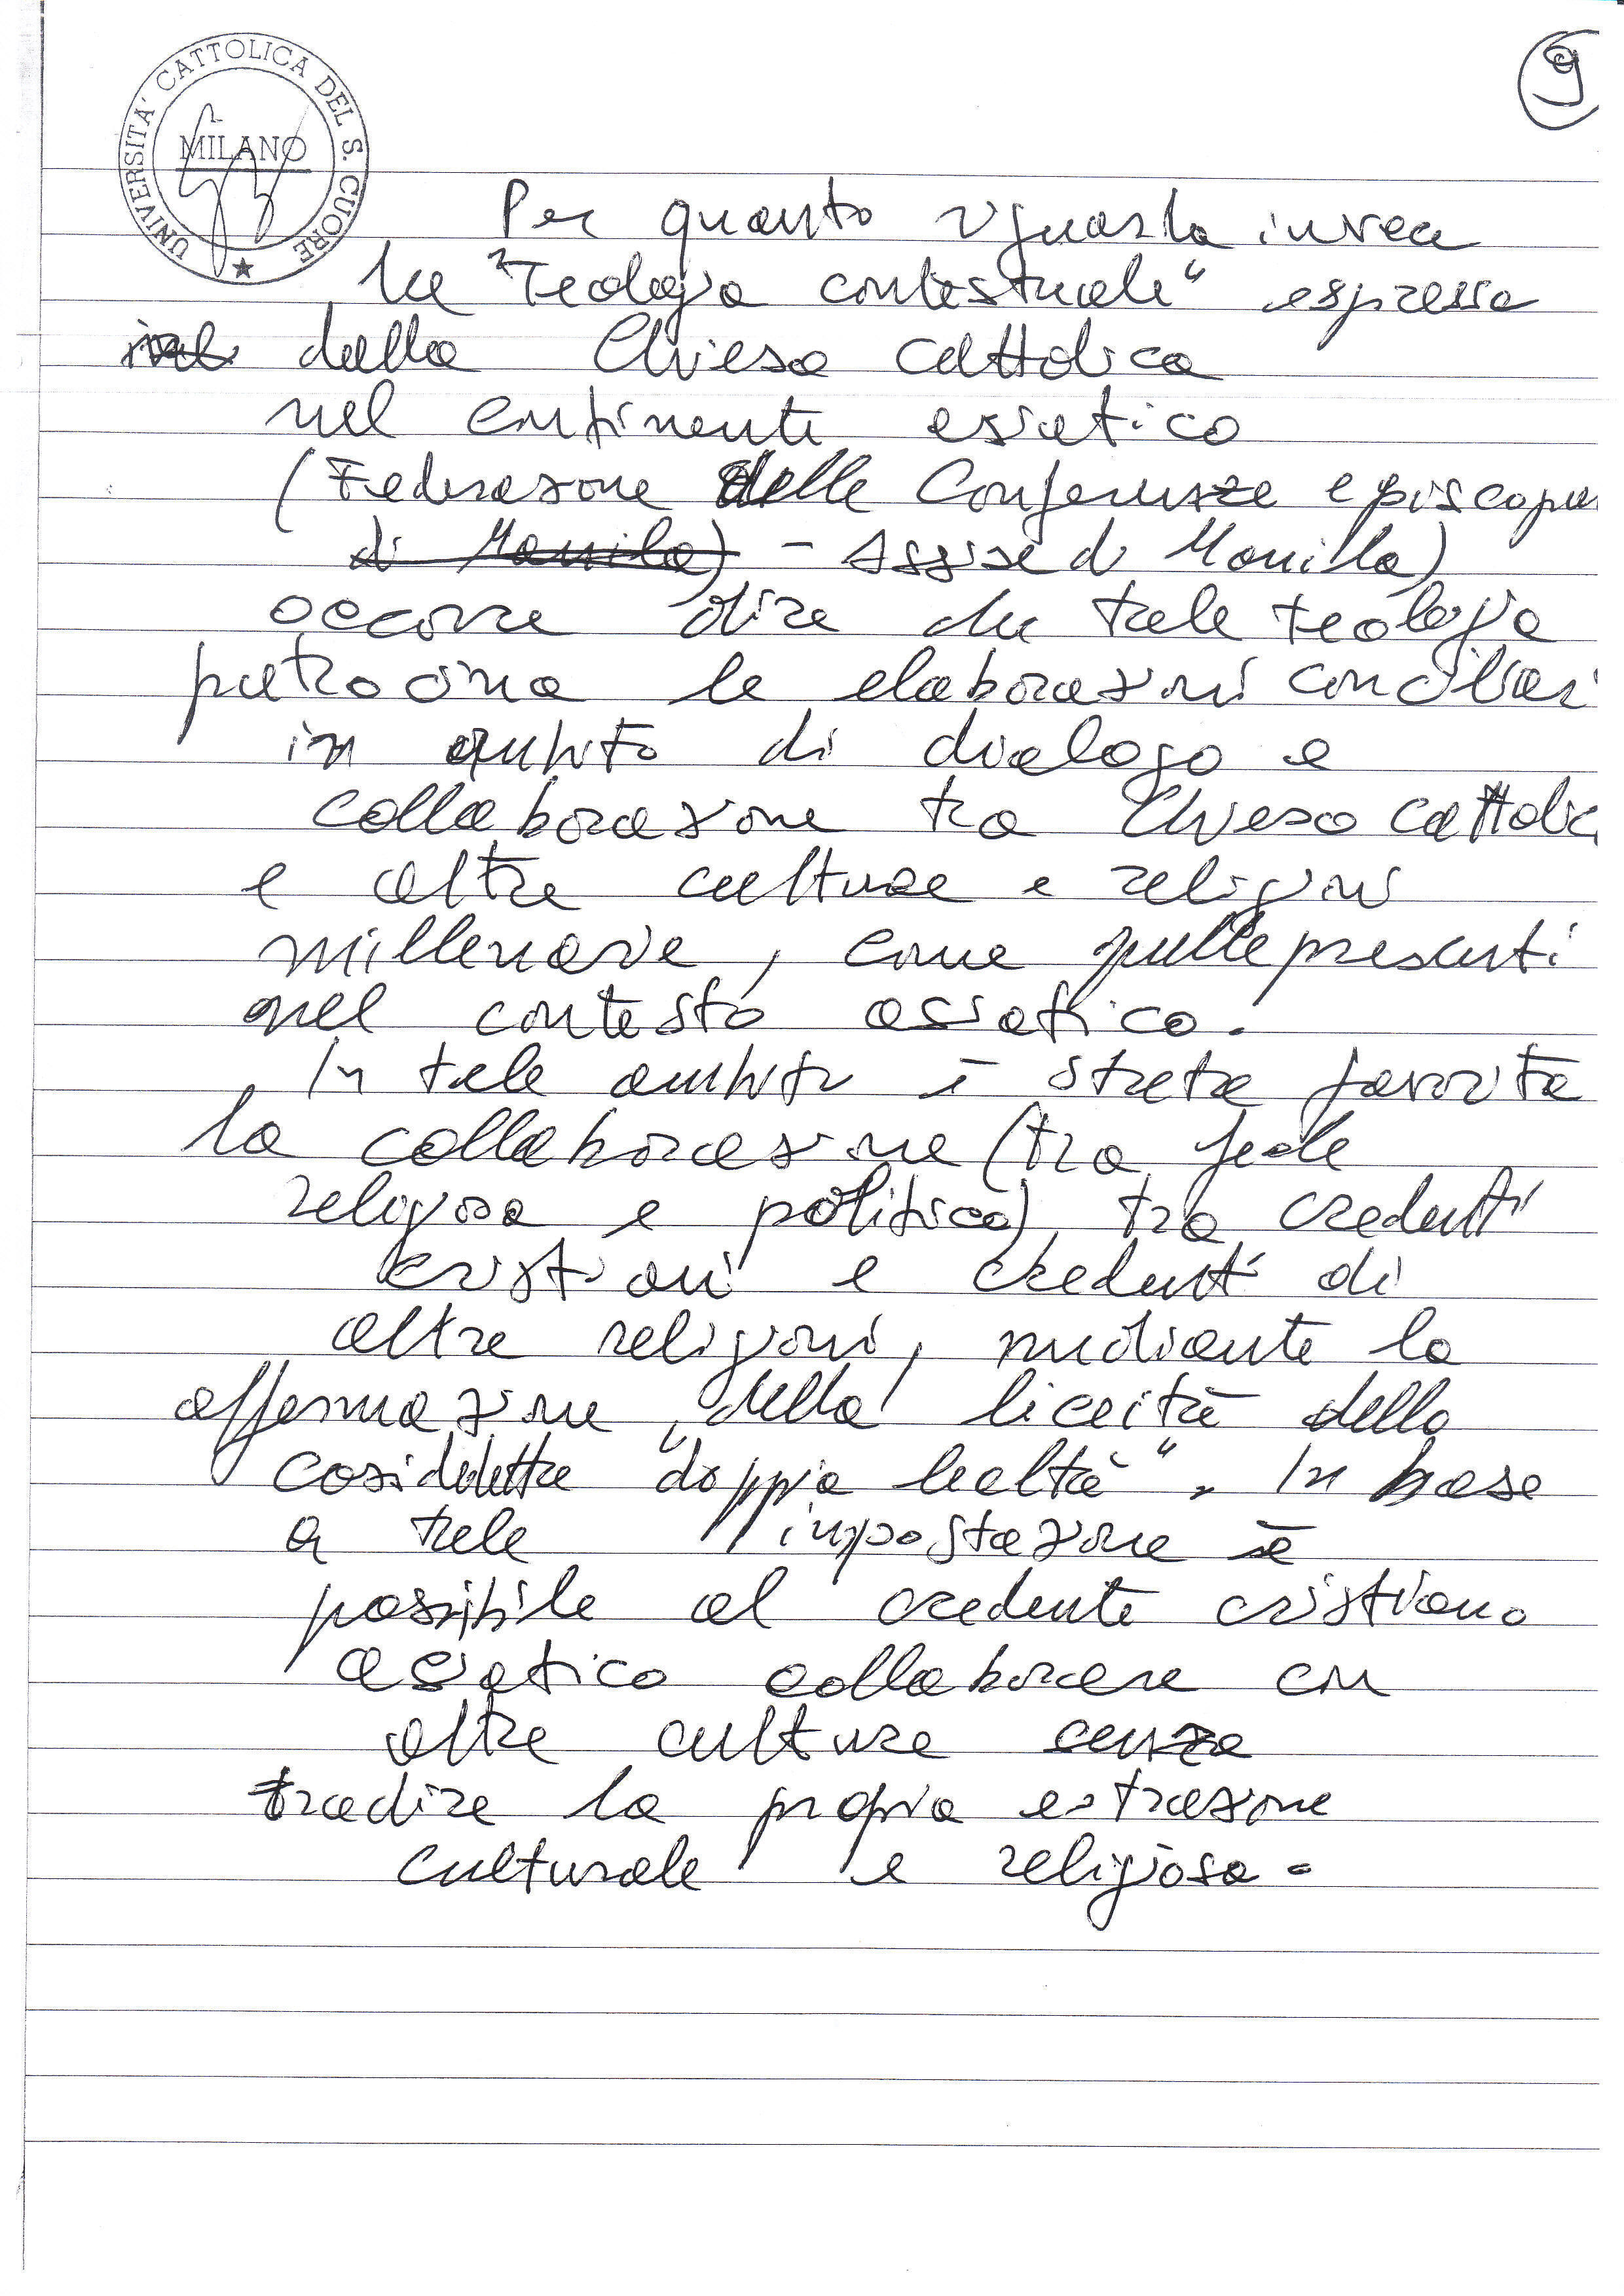 UNIVERSITA' CATTOLICA DEL S. CUORE
MILANO
9
Per quanto riguarda invece
la "Teologia contestuale" espressa
dalla Chiesa Cattolica
nel continente asiatico
(Federazione delle Conferenze episcopa
di Manila) - Assise di Manilla)
occorre dire che tale teologia
patrocina le elaborazioni conciliari
in ambito di dialogo e
collaborazione tra Chiesa Cattolic
e altre culture e religioni
millenarie, come quelle presenti
nel contesto asiatico.
In tale ambito è stata favorita
la collaborazione (tra fede
religiosa e politica) tra credenti
cristiani e credenti di
altre religioni, mediante la
affermazione della liceità della
cosiddetta "doppia lealtà". In base
a tale impostazione è
possibile al credente cristiano
asiatico collaborare con
altre culture senza
tradire la propria estrazione
culturale e religiosa.